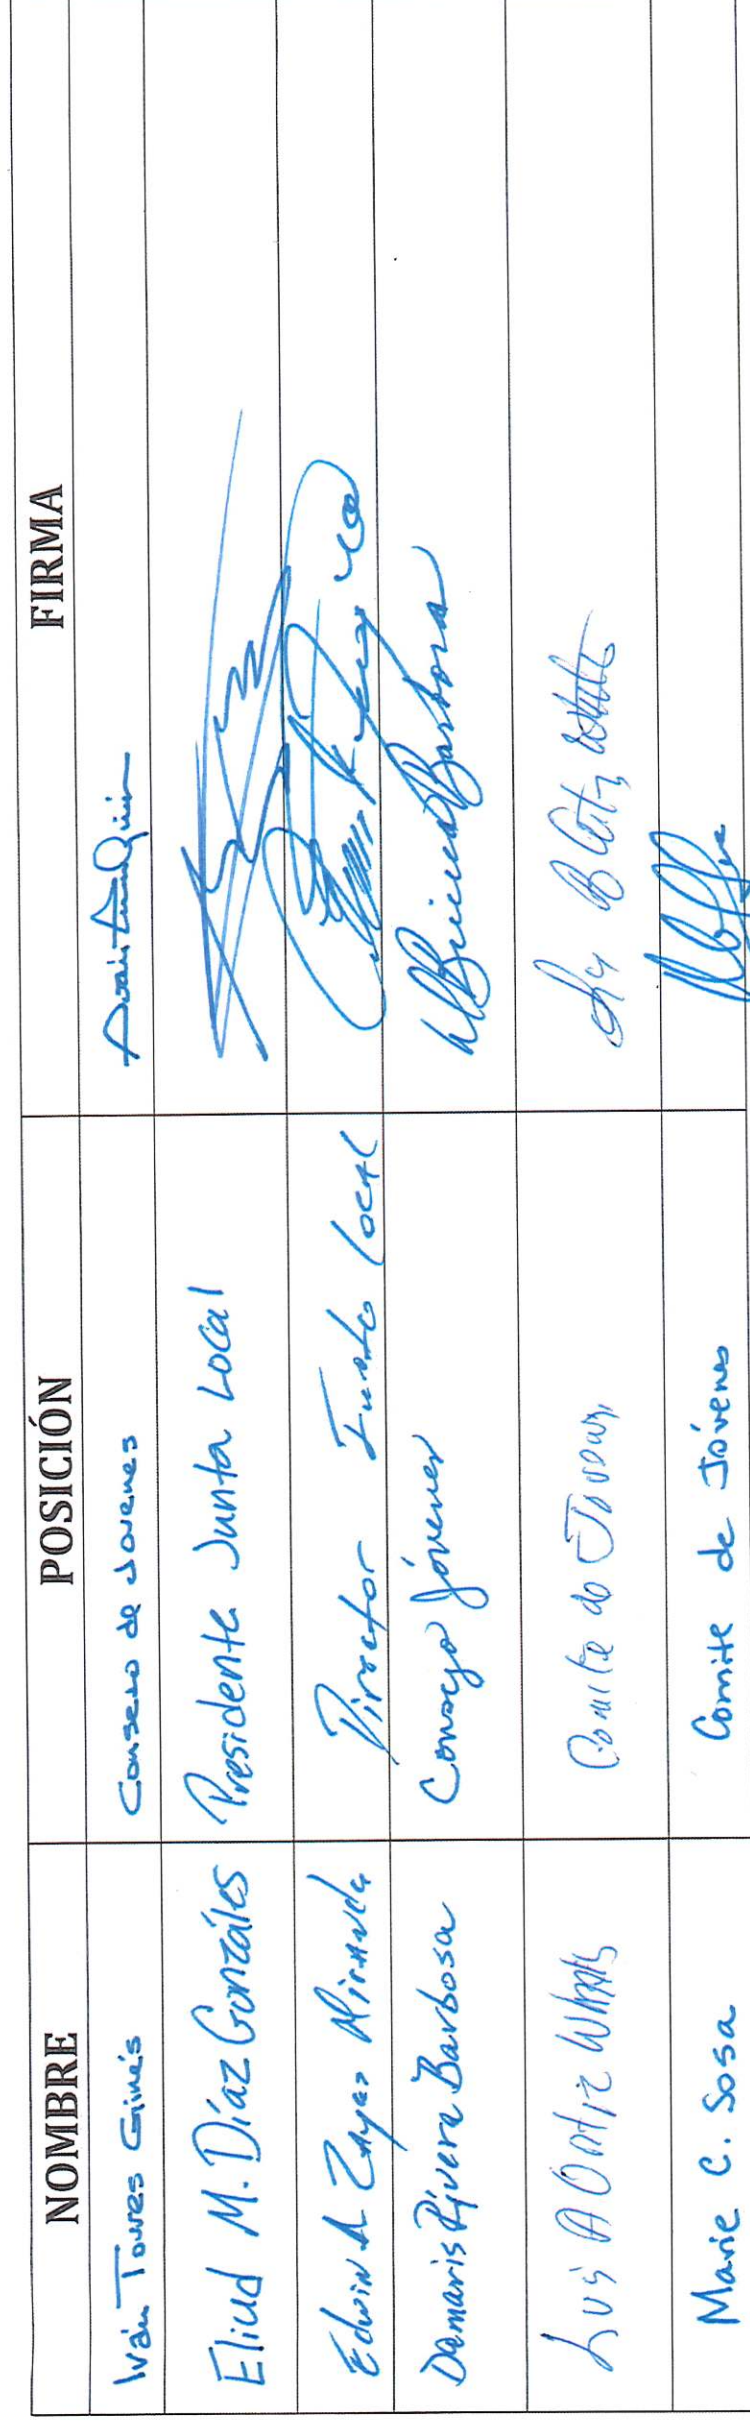 NOMBRE POSICIÓN FIRMA
Iván Torres Ginés Consejo de Jovenes
Eliud M. Díaz Gonzáles Presidente Junta Local
Edwin A Zayas Miranda Director Junta Local
Damaris Rivera Barbosa Consejo Jóvenes
Luis A Ortiz Comite de
Marie C. Sosa Comite de Jóvenes